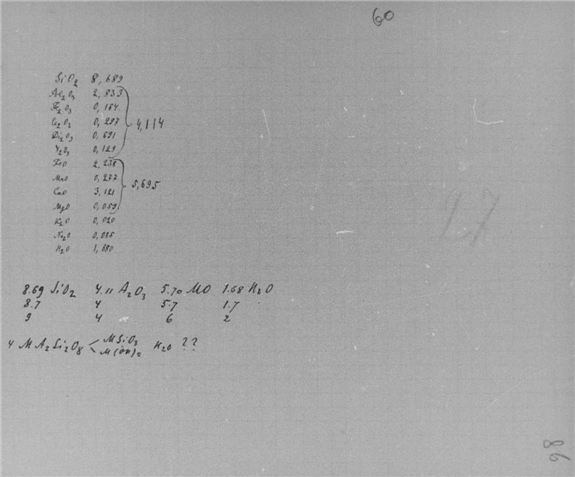 60
SiO2 8,689
Al2O3 2,833
Fe2O3 0,164
Ce2O3 0,297
Di2O3 0,691
Y2O3 0,129
4,114
FeO 2,238
MnO 0,277
CaO 3,121
MgO 0,059
5,695
K2O 0,020
Na2O 0,085
H2O
27
8.69 SiO2 4.11 A2O3 5.70 MO 1.68 H2O
8.7 4 5.7 1.7
9 4 6 2
4 M A2Si2O8 < MSiO3 M(OH)2 H2O ??
98